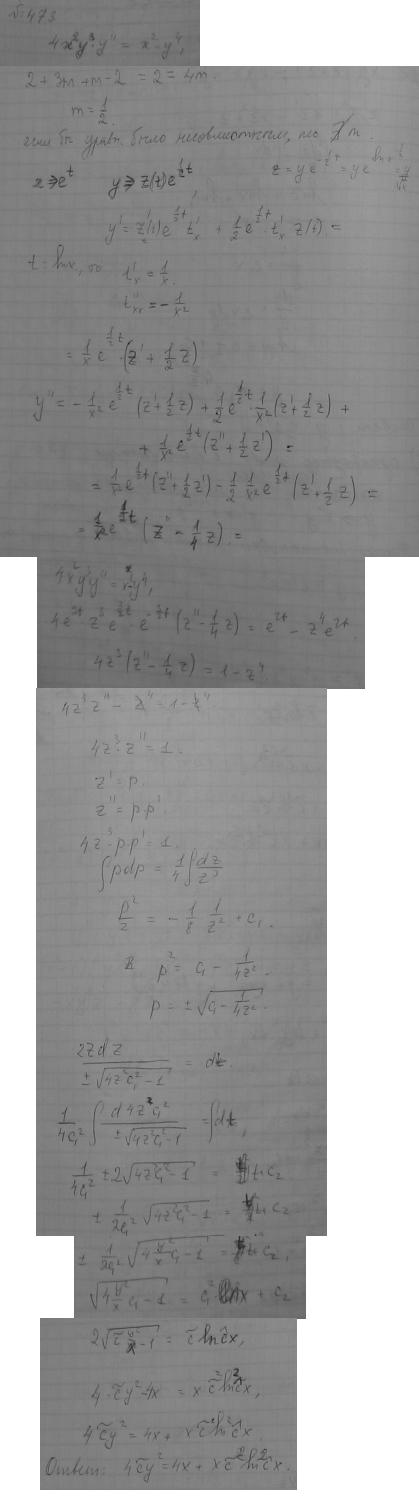 № 473
4x²y³y'' = x² - y⁴,
2 + 3m + m - 2 = 2 = 4m.
m = 1/2.
если бы уравн. было неоднотным, то ∄ m.
x → e^t y → z(t)e^{1/2 t} z = y e^{-1/2 t} = y e^{
y' = z'(t) e^{1/2 t} t'ₓ + 1/2 e^{1/2 t} · t'ₓ z(t) =
t = ln x, t'ₓ = 1/x.
t''ₓₓ = -1/x²
= 1/x e^{1/2 t} · (z' + 1/2 z)
y'' = -1/x² e^{1/2 t} (z' + 1/2 z) + 1/2 e^{1/2 t} · 1/x² (z' + 1/2 z) +
+ 1/x² e^{1/2 t} (z'' + 1/2 z') =
= 1/x² e^{1/2 t} (z'' + 1/2 z') - 1/2 1/x² e^{1/2 t} (z' + 1/2 z) =
= 1/x² e^{1/2 t} (z'' - 1/4 z). =
4x²y³y'' = x² - y⁴,
4e^{2t} z³ e^{3/2 t} · e^{-3/2 t} (z'' - 1/4 z) = e^{2t} - z⁴ e^{2t}.
4z³ (z'' - 1/4 z) = 1 - z⁴.
4z³ z'' - z⁴ = 1 - z⁴
4z³ · z'' = 1.
z' = p.
z'' = p · p'.
4z³ · p · p' = 1.
∫ p dp = 1/4 ∫ dz/z³
p²/2 = - 1/8 1/z² + c₁.
p² = c₁ - 1/4z².
p = ± √(c₁ - 1/4z²).
2z dz / ±√(4z²c₁² - 1) = dt.
1/4c₁² ∫ d 4z²c₁² / ±√(4z²c₁² - 1) = ∫ dt,
1/4c₁² ± 2√(4z²c₁² - 1) = t + c₂
± 1/2c₁² √(4z²c₁² - 1) = t + c₂
± 1/2c₁² √(4 y²/x c₁ - 1) = t + c₂,
√(4 y²/x c₁ - 1) = c₁² ln x + c₂
2√(c̃ y²/x - 1) = c̃ ln ĉx,
4 · c̃y² - 4x = x c̃² ln² ĉx,
4c̃y² = 4x + x c̃² ln² ĉx.
Ответ: 4c̃y² = 4x + x c̃² ln² ĉx.